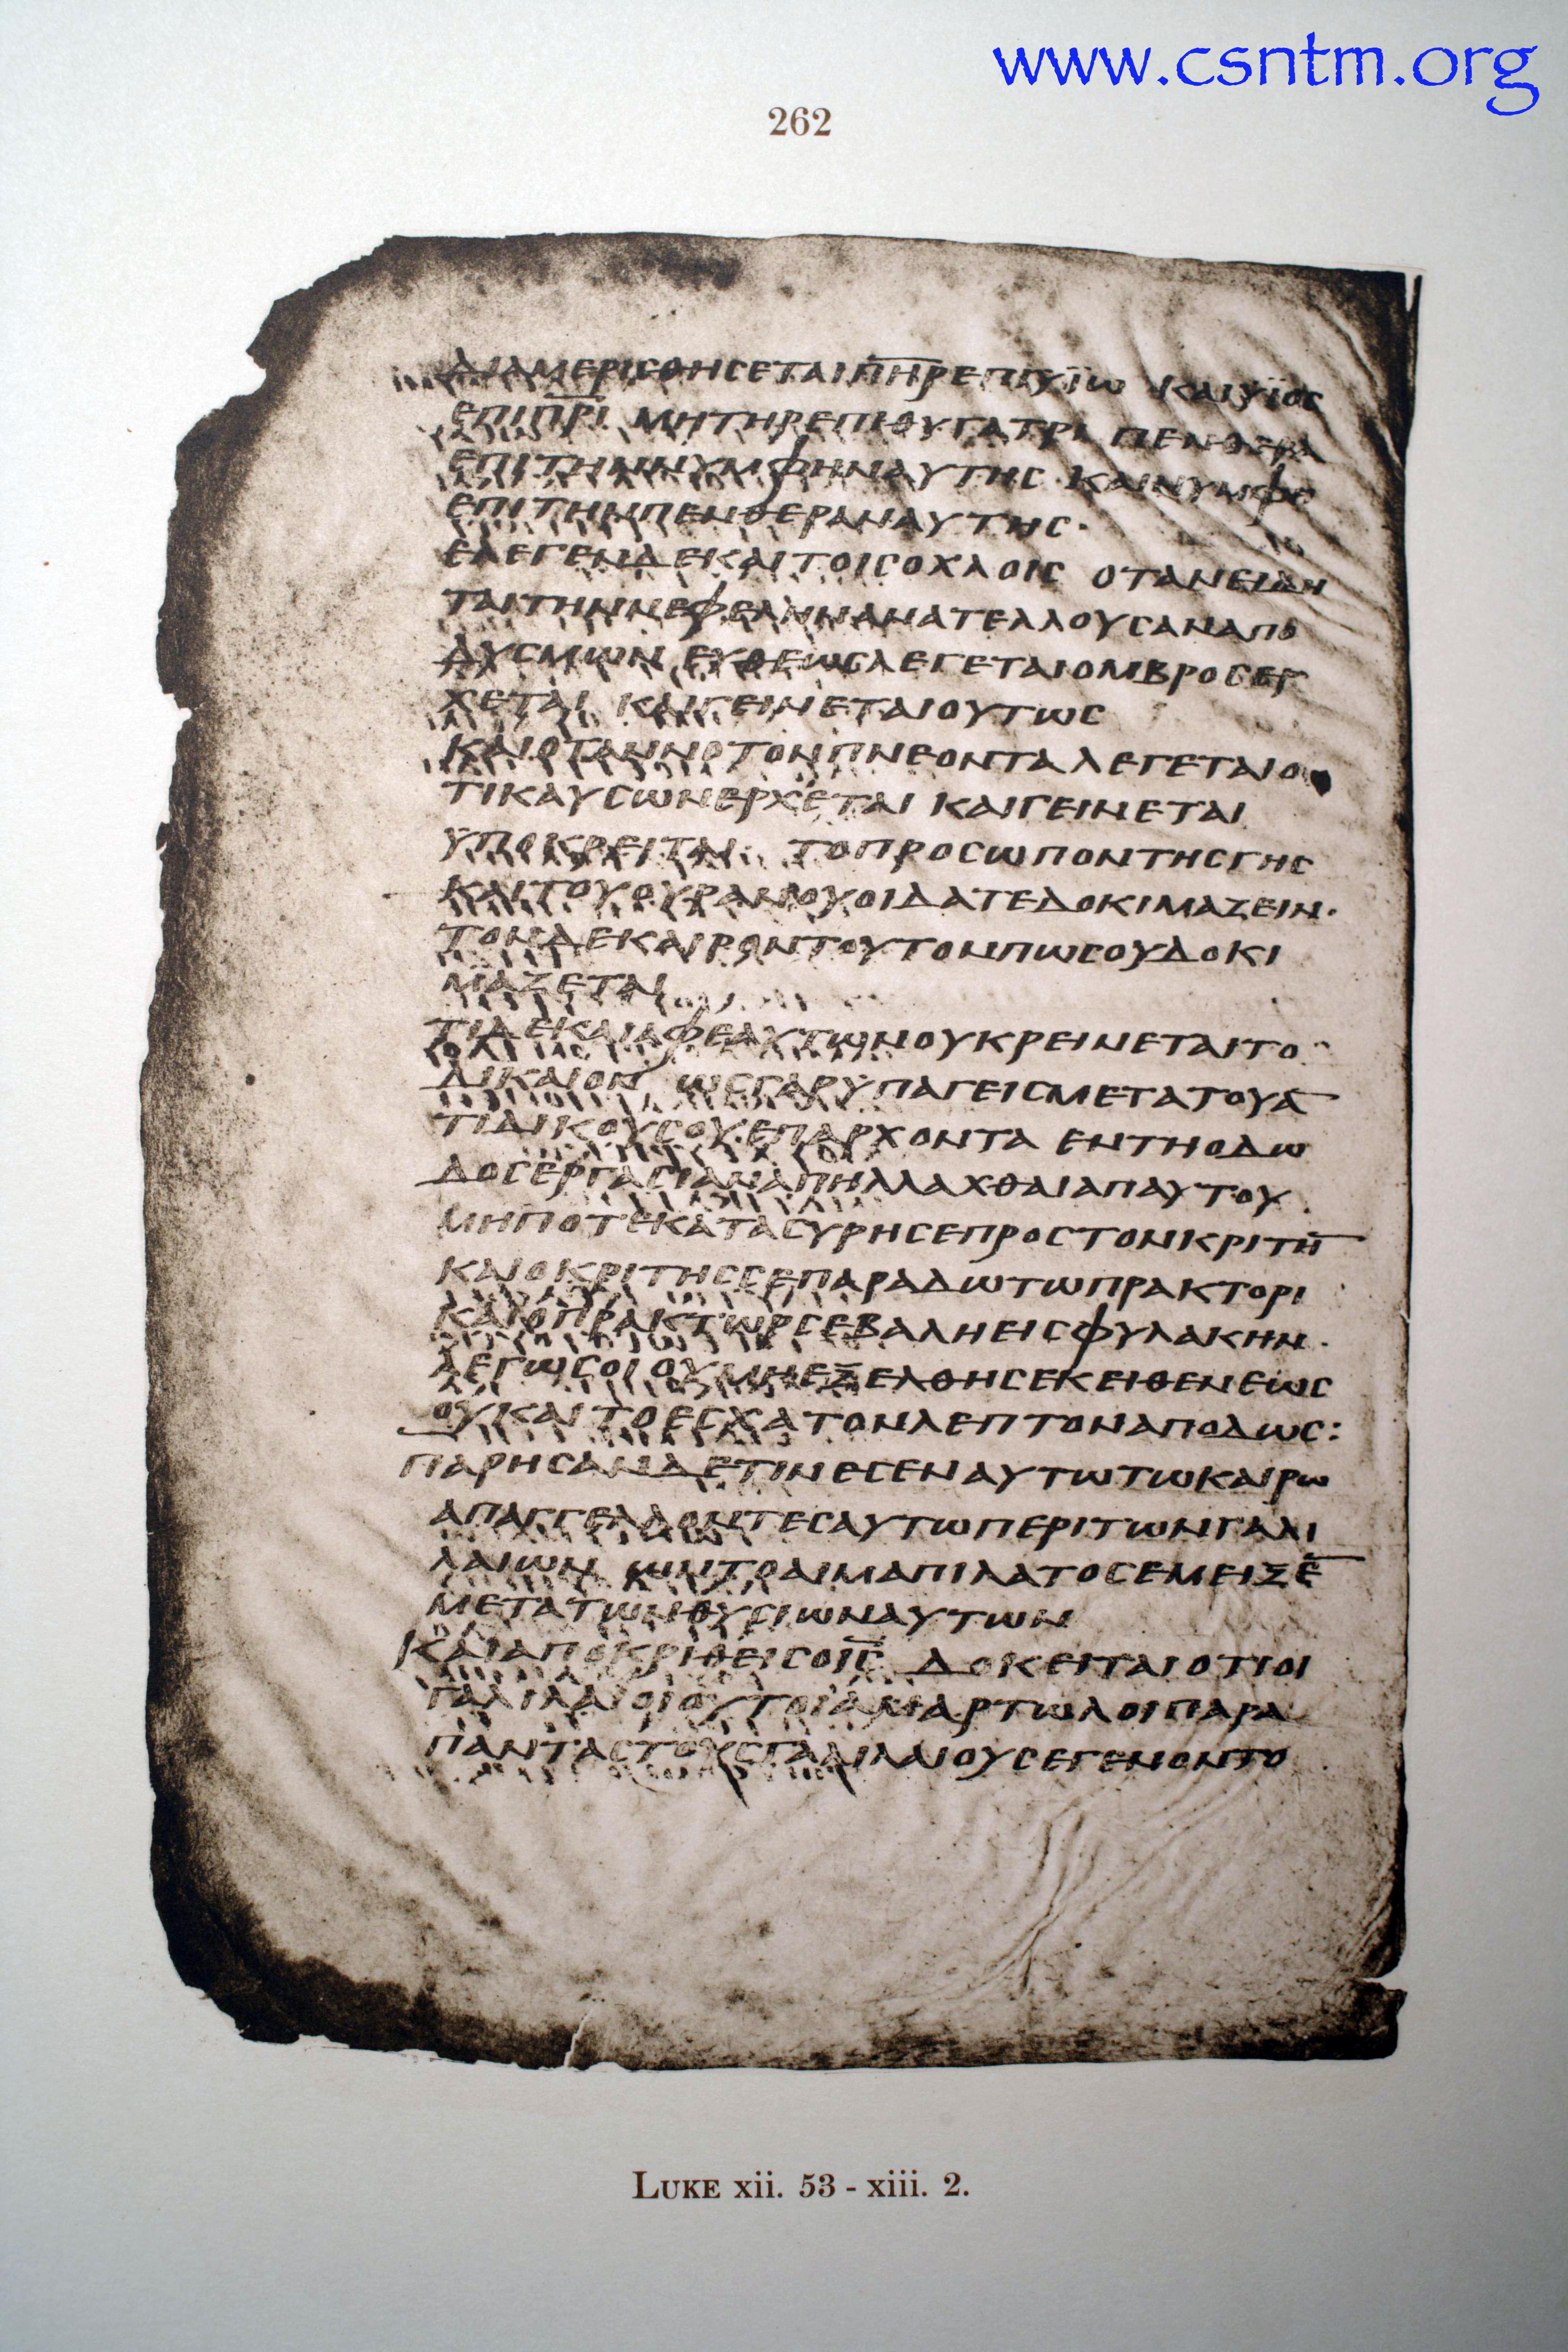 www.csntm.org
262
ΔΙΑΜΕΡΙCΘΗCΕΤΑΙΠ̅Η̅Ρ̅ΕΠΙΫΪΩ ΚΑΙΫΪΟC
ΕΠΙΠ̅Ρ̅Ι̅ ΜΗΤΗΡΕΠΙΘΥΓΑΤΡΙ ΠΕΝΘΕΡΑ
ΕΠΙΤΗΝΝΥΜΦΗΝΑΥΤΗC ΚΑΙΝΥΜΦΗ
ΕΠΙΤΗΝΠΕΝΘΕΡΑΝΑΥΤΗC·
ΕΛΕΓΕΝΔΕΚΑΙΤΟΙCΟΧΛΟΙC ΟΤΑΝΕΙΔΗ
ΤΑΙΤΗΝΝΕΦΕΛΗΝΑΝΑΤΕΛΛΟΥCΑΝΑΠΟ
ΔΥCΜΩΝ ΕΥΘΕΩCΛΕΓΕΤΑΙΟΜΒΡΟCΕΡ
ΧΕΤΑΙ ΚΑΙΓΕΙΝΕΤΑΙΟΥΤΩC
ΚΑΙΟΤΑΝΝΟΤΟΝΠΝΕΟΝΤΑΛΕΓΕΤΑΙΟ
ΤΙΚΑΥCΩΝΕΡΧΕΤΑΙ ΚΑΙΓΕΙΝΕΤΑΙ
ΥΠΟΚΡΕΙΤΑΙ ΤΟΠΡΟCΩΠΟΝΤΗCΓΗC
ΚΑΙΤΟΥΟΥΡΑΝΟΥΟΙΔΑΤΕΔΟΚΙΜΑΖΕΙΝ·
ΤΟΝΔΕΚΑΙΡΟΝΤΟΥΤΟΝΠΩCΟΥΔΟΚΙ
ΜΑΖΕΤΑΙ
ΤΙΔΕΚΑΙΑΦΕΑΥΤΩΝΟΥΚΡΕΙΝΕΤΑΙΤΟ
ΔΙΚΑΙΟΝ ΩCΓΑΡΥΠΑΓΕΙCΜΕΤΑΤΟΥΑ̅
ΤΙΔΙΚΟΥCΟΥΕΠΑΡΧΟΝΤΑ ΕΝΤΗΟΔΩ
ΔΟCΕΡΓΑCΙΑΝΑΠΗΛΛΑΧΘΑΙΑΠΑΥΤΟΥ
ΜΗΠΟΤΕΚΑΤΑCΥΡΗCΕΠΡΟCΤΟΝΚΡΙΤΗ̅
ΚΑΙΟΚΡΙΤΗCCΕΠΑΡΑΔΩΤΩΠΡΑΚΤΟΡΙ
ΚΑΙΟΠΡΑΚΤΩΡCΕΒΑΛΗΕΙCΦΥΛΑΚΗΝ·
ΛΕΓΩCΟΙ ΟΥΜΗΕΞΕΛΘΗCΕΚΕΙΘΕΝΕΩC
ΟΥΚΑΙΤΟΕCΧΑΤΟΝΛΕΠΤΟΝΑΠΟΔΩC:
ΠΑΡΗCΑΝΔΕΤΙΝΕCΕΝΑΥΤΩΤΩΚΑΙΡΩ
ΑΠΑΓΓΕΛΛΟΝΤΕCΑΥΤΩΠΕΡΙΤΩΝΓΑΛΙ
ΛΑΙΩΝ ΩΝΤΟΑΙΜΑΠΙΛΑΤΟCΕΜΕΙΞΕ̅
ΜΕΤΑΤΩΝΘΥCΙΩΝΑΥΤΩΝ
ΚΑΙΑΠΟΚΡΙΘΕΙCΟΙ̅C̅ ΔΟΚΕΙΤΑΙΟΤΙΟΙ
ΓΑΛΙΛΑΙΟΙΟΥΤΟΙΑΜΑΡΤΩΛΟΙΠΑΡΑ
ΠΑΝΤΑCΤΟΥCΓΑΛΙΛΑΙΟΥCΕΓΕΝΟΝΤΟ
LUKE xii. 53 - xiii. 2.